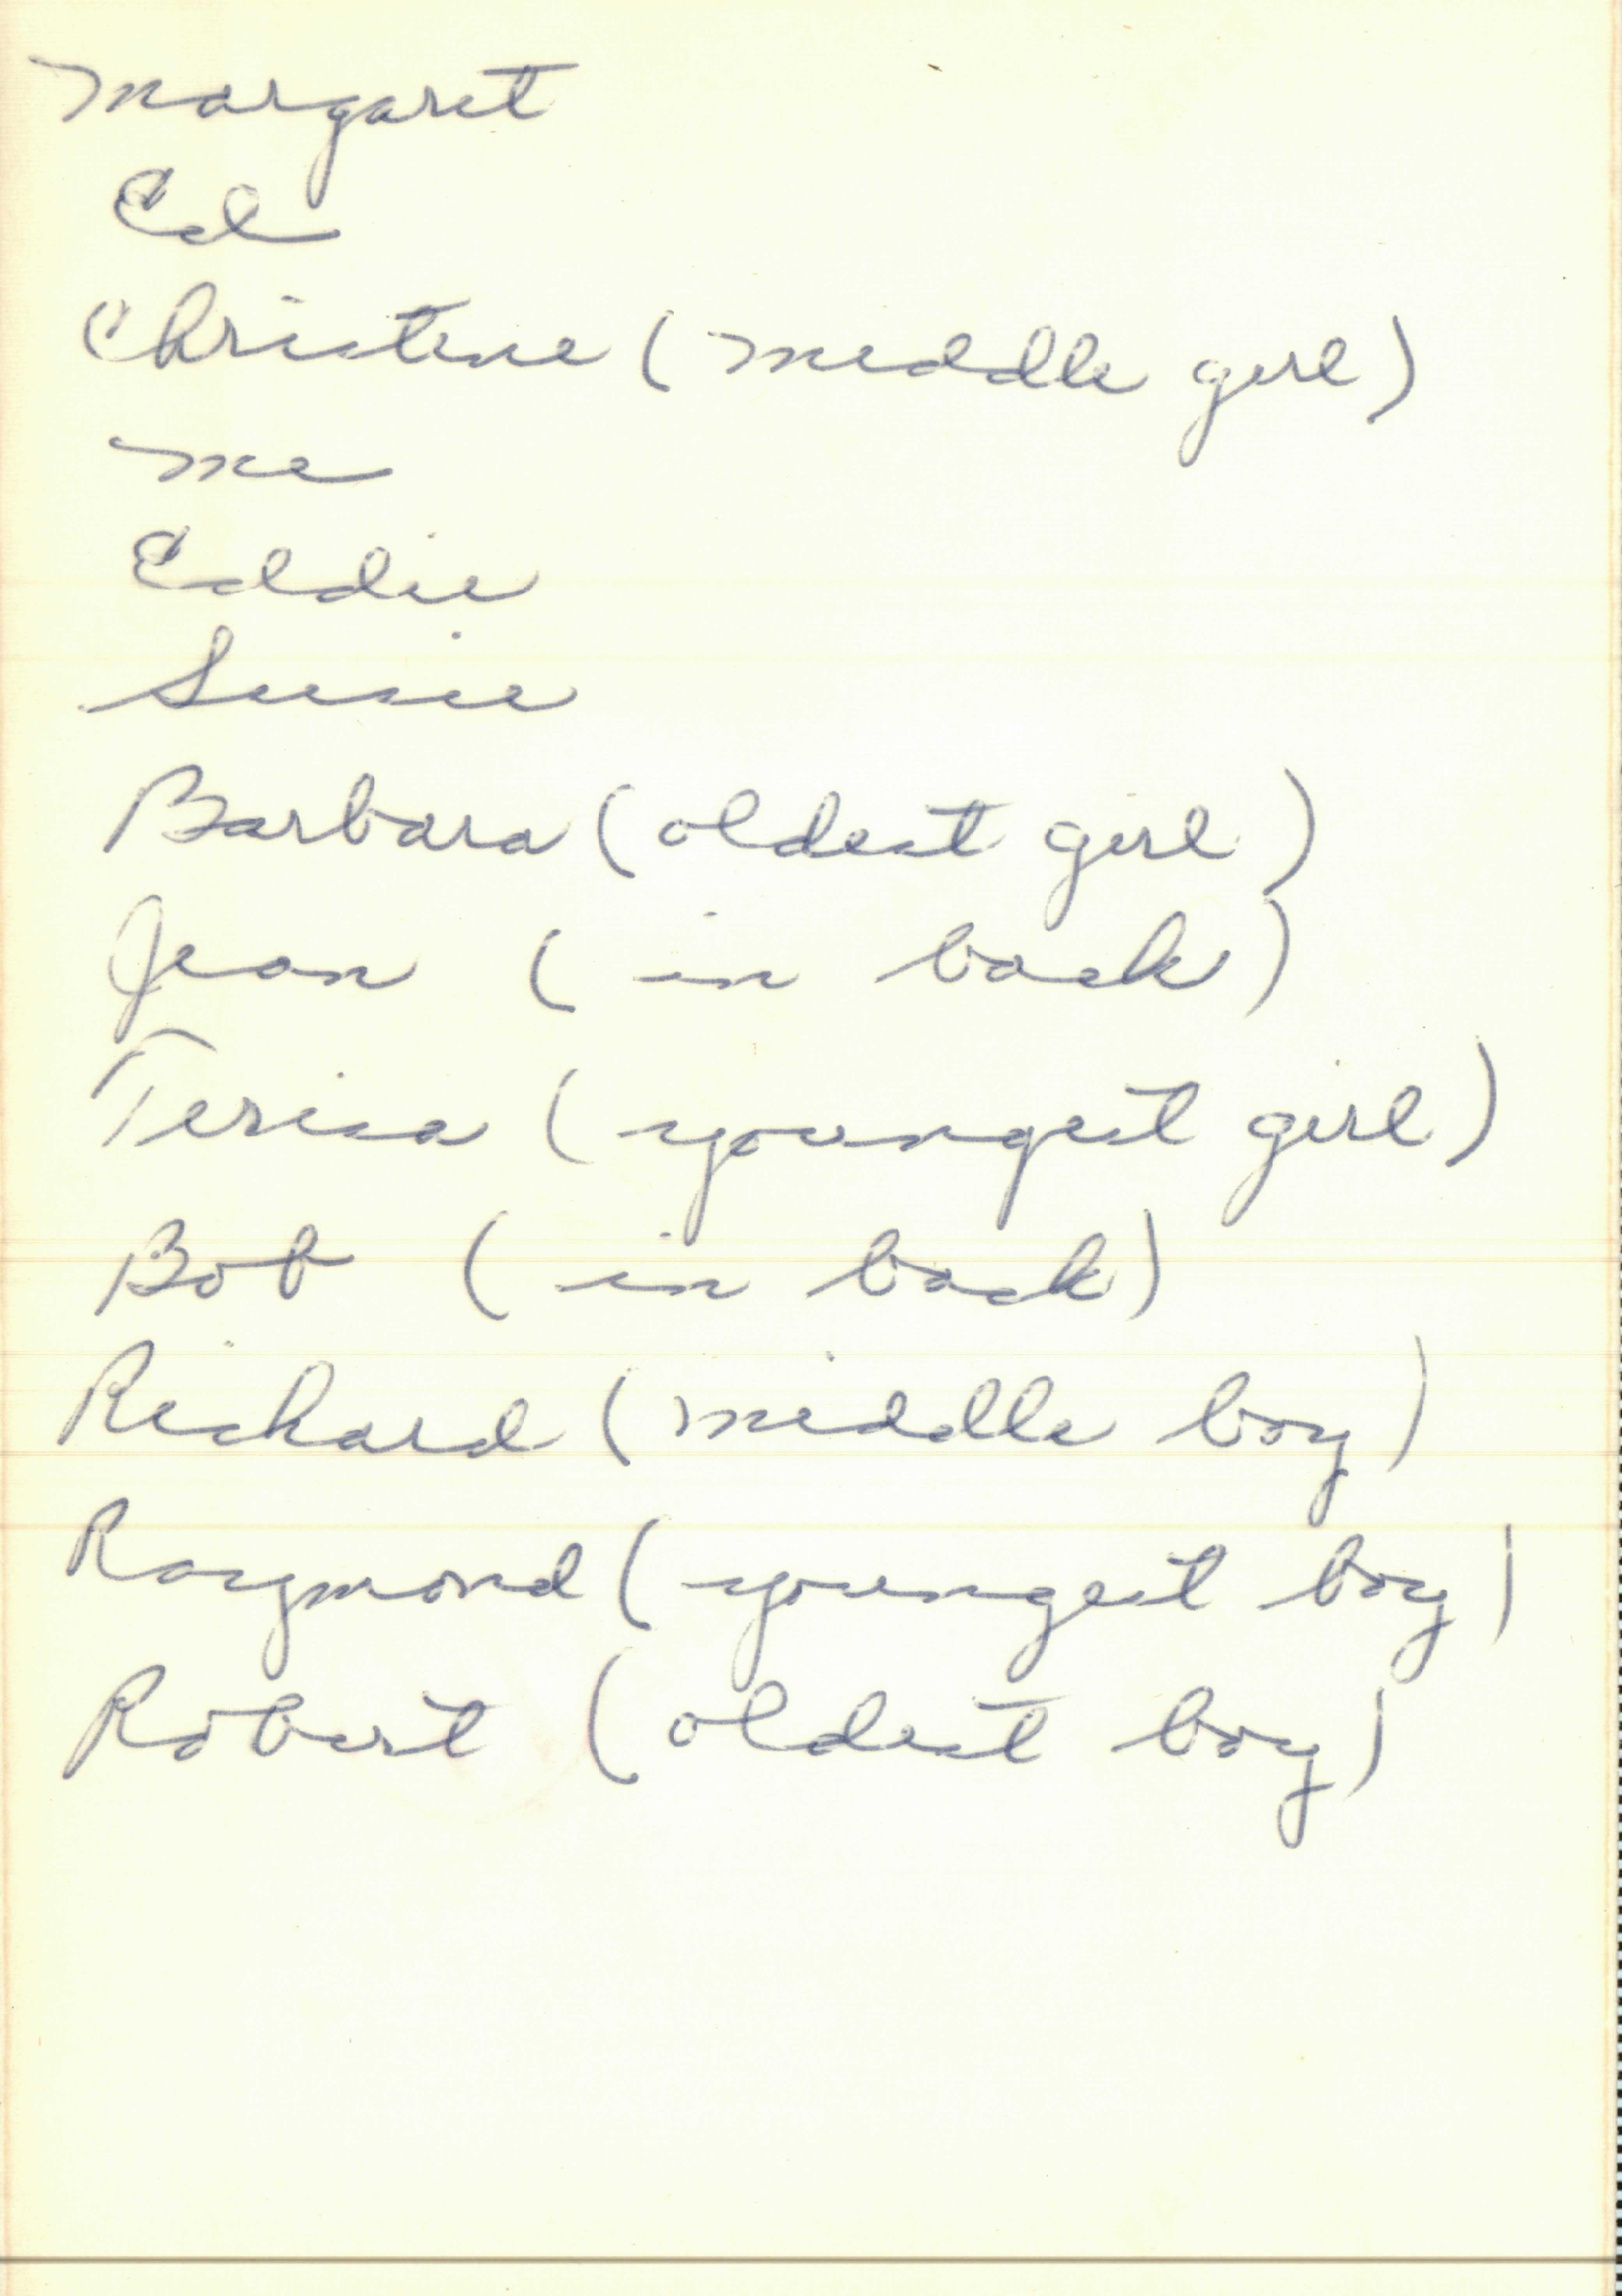 Margaret
Ed
Christine (middle girl)
me
Eddie
Susie
Barbara (oldest girl)
Jean (in back)
Terisa (youngest girl)
Bob (in back)
Richard (middle boy)
Raymond (youngest boy)
Robert (oldest boy)